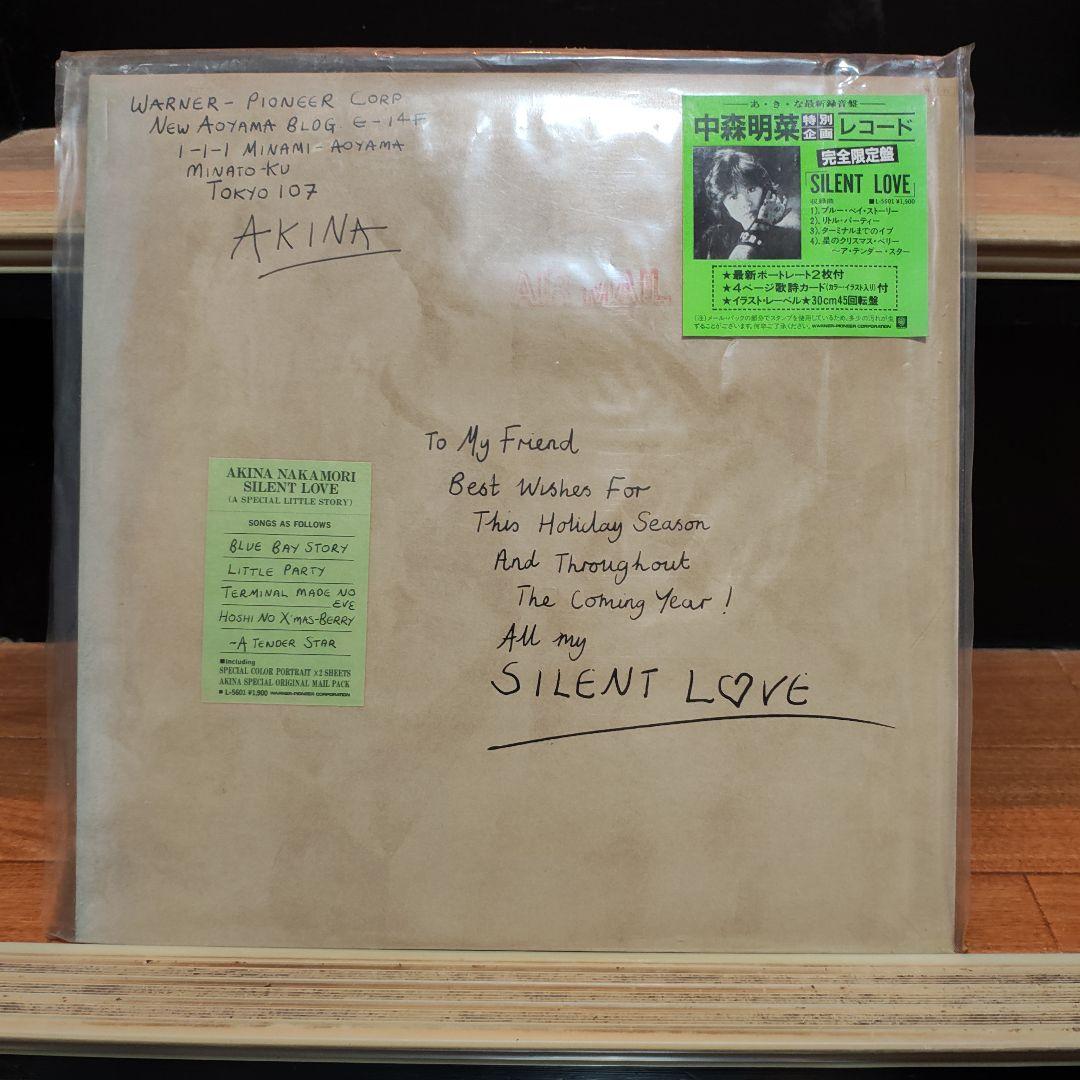 WARNER-PIONEER CORP
NEW AOYAMA BLDG. E-14F
1-1-1 MINAMI-AOYAMA
MINATO-KU
TOKYO 107
AKINA
AIR MAIL
あ・き・な最新録音盤
中森明菜特別企画レコード
完全限定盤
「SILENT LOVE」
収録曲 ■L-5601 ¥1,900
1).ブルー・ベイ・ストーリー
2).リトル・パーティー
3).ターミナルまでのイブ
4).星のクリスマス・ベリー
〜ア・テンダー・スター
★最新ポートレート2枚付
★4ページ歌詩カード(カラー・イラスト入り)付
★イラスト・レーベル★30cm45回転盤
(注)メール・パックの部分でスタンプを使用しているため、多少の汚れが生
ずることがございます。何卒ご了承ください。WARNER-PIONEER CORPORATION
To My Friend
Best Wishes For
This Holiday Season
And Throughout
The Coming Year!
All my
SILENT L♡VE
AKINA NAKAMORI
SILENT LOVE
(A SPECIAL LITTLE STORY)
SONGS AS FOLLOWS
BLUE BAY STORY
LITTLE PARTY
TERMINAL MADE NO
EVE
HOSHI NO X'MAS-BERRY
~A TENDER STAR
■Including
SPECIAL COLOR PORTRAIT ×2 SHEETS
AKINA SPECIAL ORIGINAL MAIL PACK
■L-5601 ¥1,900 WARNER-PIONEER CORPORATION